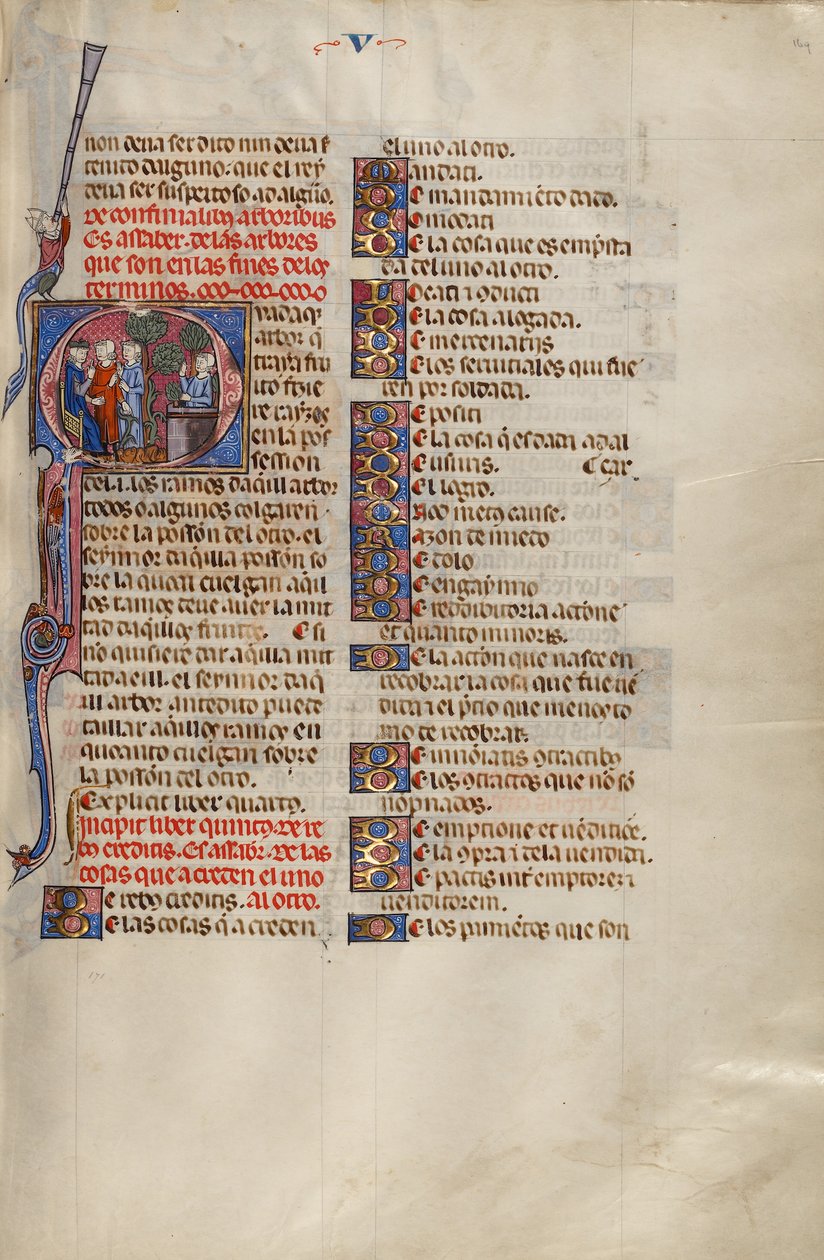 V
169
non deua ser dito nin deua s
tenito dalguno. que el rey
deua ser suspeitoso ad algũo.
De confinialibꝰ arboribus
Es assaber. de las arbores
que son en las fines delos
terminos.
Quada q̃
arbor q̃
fru
ito
re rayzes
en la pos
session
del .i. los ramos daq̃lla arbor
todos o algunos colgaren
sobre la possiõn del otro. el
seynnor daq̃lla possiõn so
bre la quoal cuelgan aq̃ll
los ramos deue auer la mit
tad daq̃llos fruitos. ¶ Si
nõ quisiere dar aq̃lla mit
tad a eill. el seynnor daq̃
ill arbor antedito puede
taillar aq̃llos ramos en
quoanto cuelgan sobre
la possiõn del otro.
¶ Explicit liber quartꝰ.
Incipit liber quintꝰ. De re
bꝰ creditis. Es assabr̃. De las
cosas que acreden el uno
al otro.
De rebꝰ creditis.
De las cosas q̃ acreden
171
el uno al otro.
Mandati.
De mandamiẽto dado.
Comodati
De la cosa que es emp̃sta
da del uno al otro.
Locati ⁊ ꝯducti
De la cosa alogada.
De mercenariis
De los seruiciales qui sue
ren por soldada.
Depositi
De la cosa q̃ es dada a dal
De usuris. ¶ çar.
De logro.
Quod metꝰ cause.
Razon de miedo
De dolo
De engaynno
De reddibitoria actione
et quanto minoris.
De la actiõn que nasce en
recobrar la cosa que fue uẽ
dita ⁊ el p̃cio que menos to
mo de recobrar.
De innoĩatis ꝯtractibꝰ
De los ꝯtractos que nõ sõ
nõpnados.
De emptione et uẽditiõe.
De la ꝯpra ⁊ de la uendida.
De pactis int̃ emptorem ⁊
uenditorem.
De los paramiẽtos que son